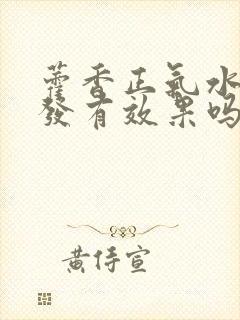 藿香正氣水
發有效果吗
黄侍宣